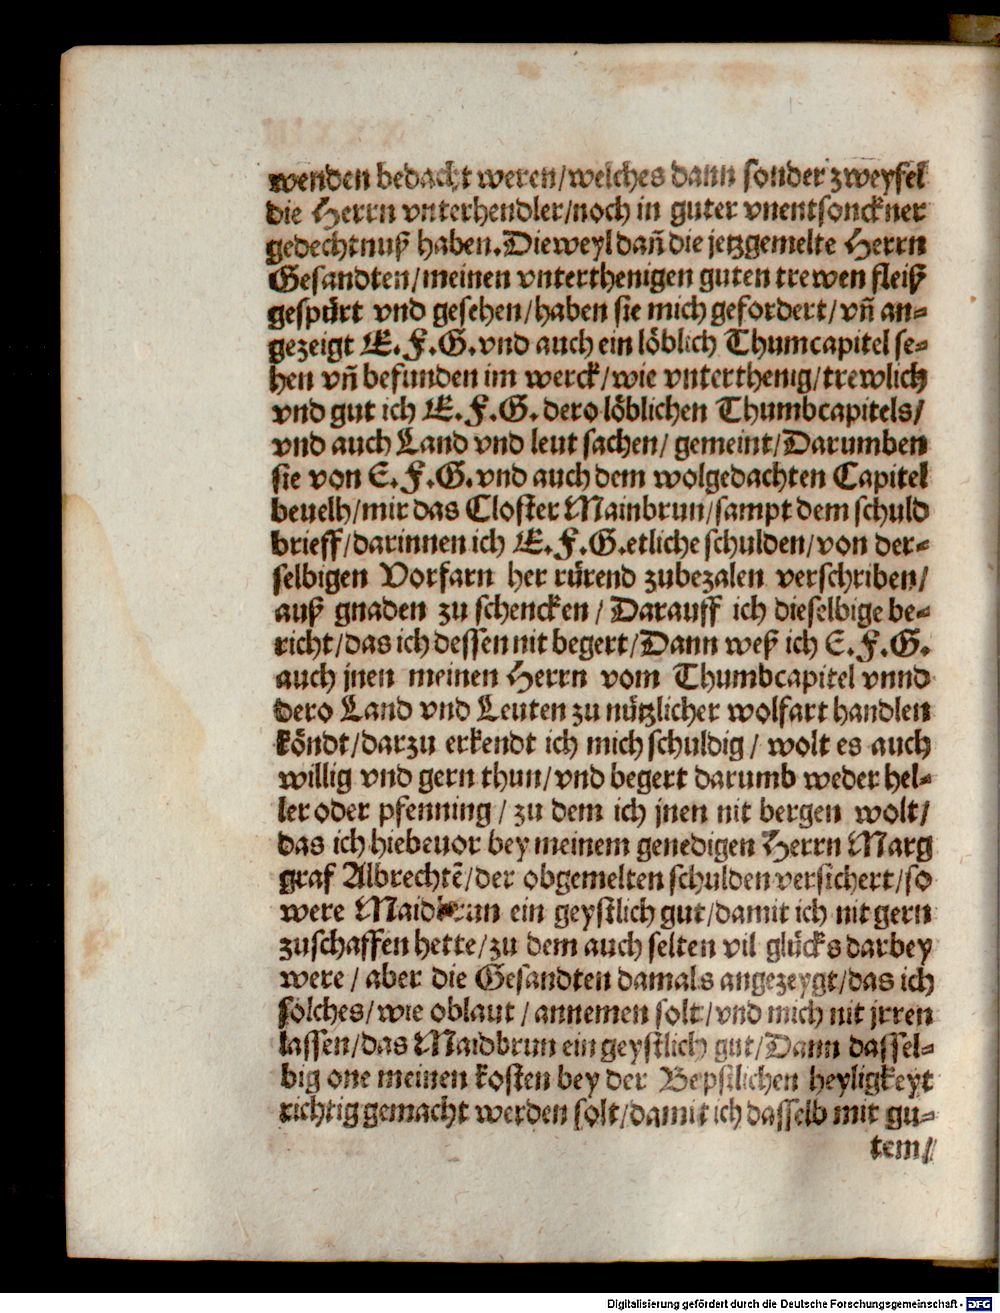 wenden bedacht weren/welches dann sonder zweyfel
die Herrn vnterhendler/noch in guter vnentsonckner
gedechtnuß haben. Dieweyl dañ die jetzgemelte Herrn
Gesandten/meinen vnterthenigen guten trewen fleiß
gespürt vnd gesehen/haben sie mich gefordert/vñ an-
gezeigt E.F.G. vnd auch ein löblich Thumcapitel se-
hen vñ befunden im werck/wie vnterthenig/trewlich
vnd gut ich E.F.G. dero löblichen Thumbcapitels/
vnd auch Land vnd leut sachen/ gemeint/Darumben
sie von E.F.G. vnd auch dem wolgedachten Capitel
beuelh/mir das Closter Mainbrun/sampt dem schuld
brieff/darinnen ich E.F.G. etliche schulden/von der-
selbigen Vorfarn her rürend zubezalen verschriben/
auß gnaden zu schencken/ Darauff ich dieselbige be-
richt/das ich dessen nit begert/Dann weß ich E.F.G.
auch jnen meinen Herrn vom Thumbcapitel vnnd
dero Land vnd Leuten zu nützlicher wolfart handlen
köndt/darzu erkendt ich mich schuldig/ wolt es auch
willig vnd gern thun/vnd begert darumb weder hel-
ler oder pfenning/ zu dem ich jnen nit bergen wolt/
das ich hiebeuor bey meinem genedigen Herrn Marg
graf Albrechtẽ/der obgemelten schulden versichert/so
were Maidbrun ein geystlich gut/damit ich nit gern
zuschaffen hette/zu dem auch selten vil glücks darbey
were/ aber die Gesandten damals angezeygt/das ich
solches/wie oblaut/ annemen solt/vnd mich nit jrren
lassen/das Maidbrun ein geystlich gut/Dann dassel-
big one meinen kosten bey der Bepstlichen heyligkeyt
richtig gemacht werden solt/damit ich dasselb mit gu-
tem/
Digitalisierung gefördert durch die Deutsche Forschungsgemeinschaft - DFG